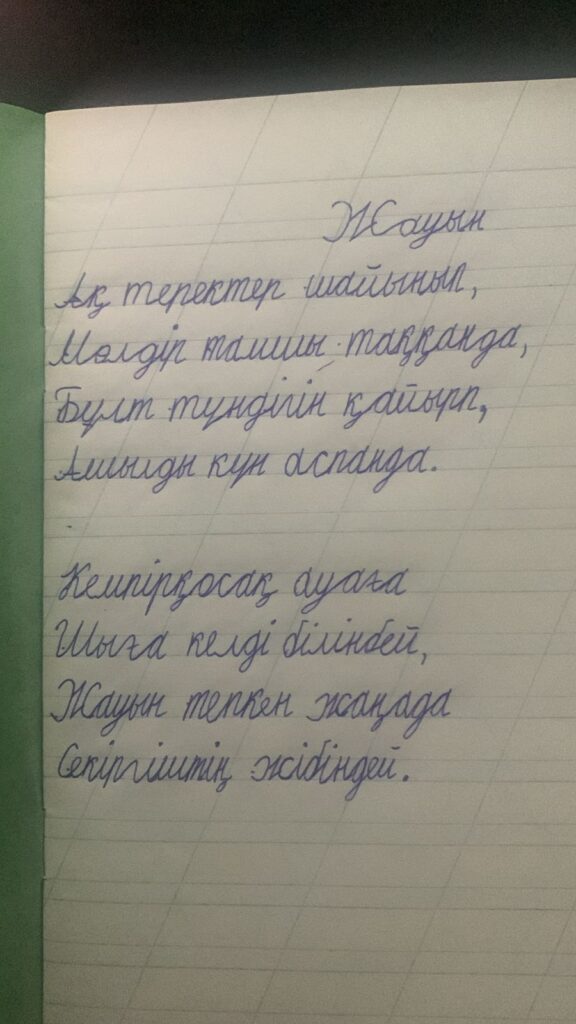 Жауын
Ақ теректер шайынып,
Мөлдір тамшы таққанда,
Бұлт түндігін қайырп,
Ашылды күн аспанда.
Кемпірқосақ ауаға
Шыға келді білінбей,
Жауын тепкен жаңада
Секіргіштің жібіндей.